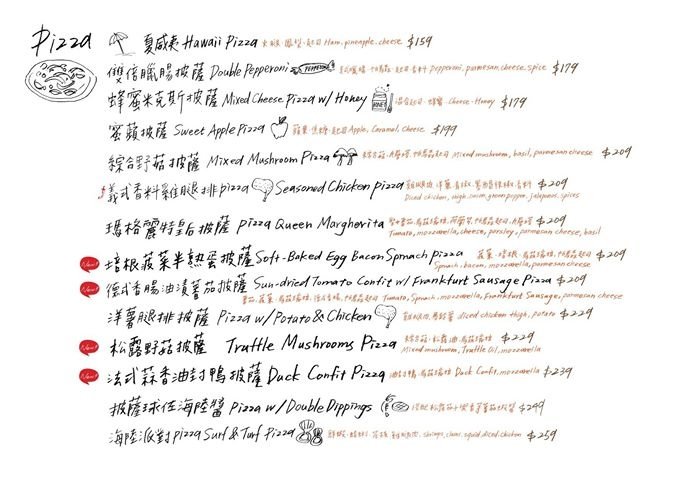 Pizza
夏威夷 Hawaii Pizza 火腿.鳳梨.起司 Ham, pineapple, cheese $159
雙倍臘腸披薩 Double Pepperoni PEPPERONI 起司 香料 Pepperoni, parmesan, cheese, spice $179
蜂蜜米克斯披薩 Mixed Cheese Pizza w/ Honey HONEY 混合起司.蜂蜜. Cheese. Honey $179
蜜蘋披薩 Sweet Apple Pizza 蘋果.焦糖.起司 Apple, Caramel, Cheese $199
綜合野菇披薩 Mixed Mushroom Pizza 綜合菇. Mixed mushroom, basil, parmesan cheese $209
義式香料雞腿排 pizza Seasoned Chicken pizza 雞腿排 洋蔥 青椒 香料 $209
Diced chicken, thigh, onion, green pepper, jalapenos, spices
瑪格麗特皇后披薩 pizza Queen Margherita $209
Tomato, mozzarella, cheese, parsley, parmesan cheese, basil
New! 培根菠菜半熟蛋披薩 Soft-Baked Egg Bacon Spinach Pizza 菠菜.培根. $209
Spinach, bacon, mozzarella, parmesan cheese
New! 德式香腸油漬蕃茄披薩 Sun-dried Tomato Confit w/ Frankfurt Sausage Pizza $209
Tomato, Spinach, mozzarella, Frankfurt Sausage, parmesan cheese
洋薯腿排披薩 Pizza w/ Potato & Chicken 雞腿肉.馬鈴薯 diced chicken thigh, potato $229
New! 松露野菇披薩 Truffle Mushrooms Pizza 綜合菇.松露油. $229
Mixed mushroom, Truffle Oil, mozzarella
New! 法式蒜香油封鴨披薩 Duck Confit Pizza 油封鴨. Duck Confit, mozzarella $239
披薩球佐海陸醬 Pizza w/ Double Dippings $249
海陸派對 pizza Surf & Turf Pizza 鮮蝦. 花枝 雞腿肉. shrimps, clams, squid diced chicken $259